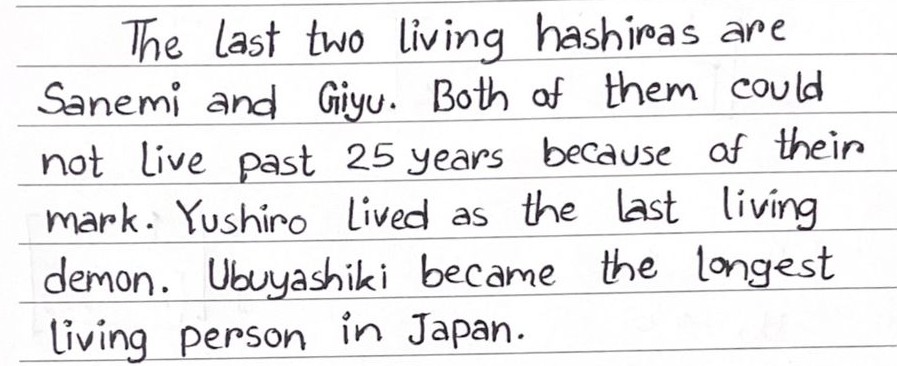 The last two living hashiras are
Sanemi and Giyu. Both of them could
not live past 25 years because of their
mark. Yushiro lived as the last living
demon. Ubuyashiki became the longest
living person in Japan.